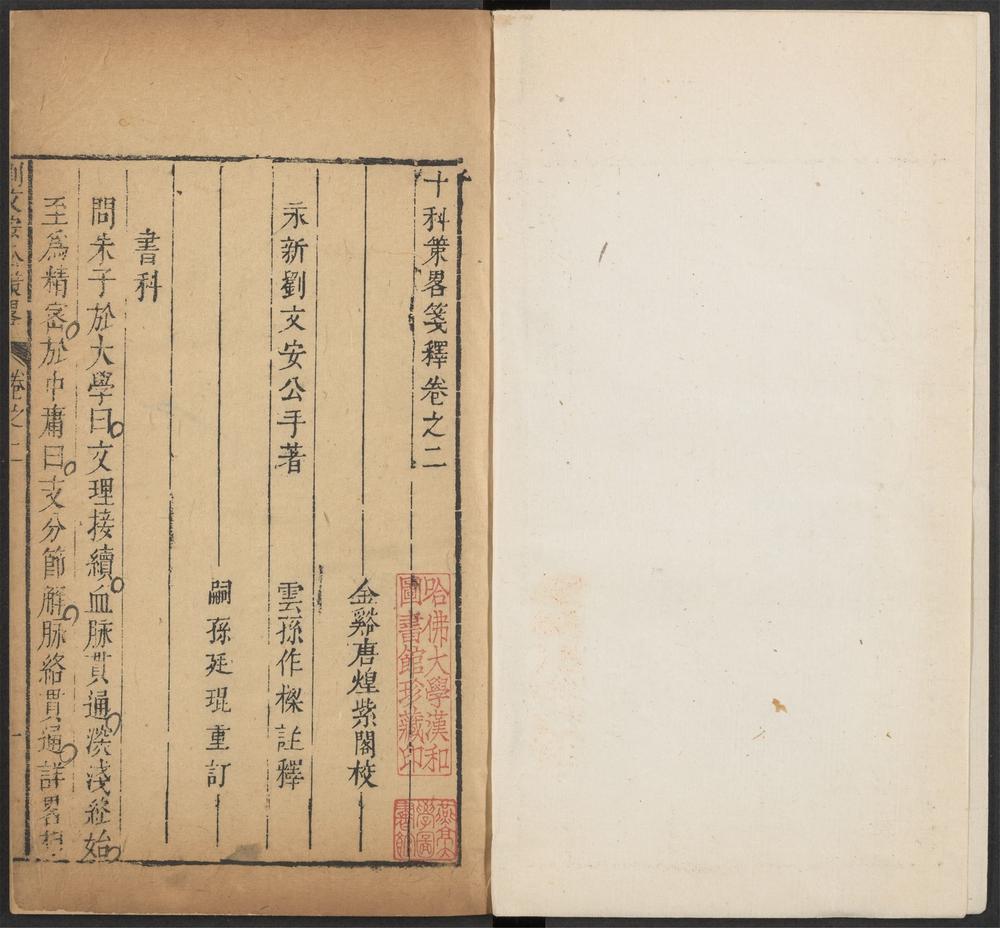 十科策畧箋釋卷之二
金谿唐煌紫閣校
永新劉文安公手著
雲孫作樑註釋
嗣孫廷琨重訂
書科
問朱子於大學曰文理接續血脉貫通深淺始
至爲精密於中庸曰支分節解脉絡貫通詳畧
劉文安公策畧
卷之二
一
哈佛大學漢和
圖書館珍藏印